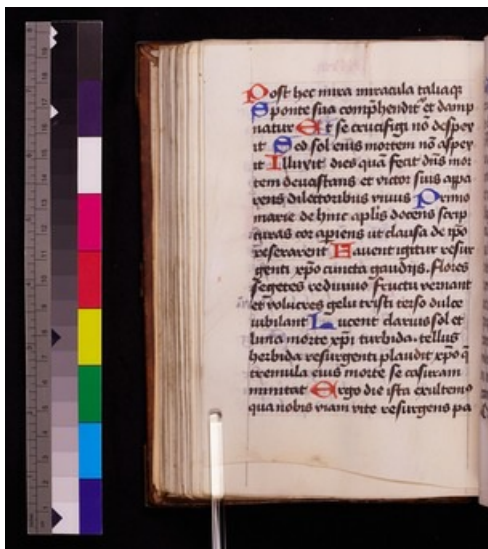 Post hec mira miracula taliaq;
Sponte sua comp̄hendit̄ et damp
natur Et se crucifigi nō despex
it Sed sol eius mortem nō aspex
it Illuxit dies quā fecit dn̄s mor
tem deuastans et victor suis appa
rens dilectoribus viuus Primo
marie de hinc aplīs docens scrip
turas cor apiens ut clausa de ip̄o
reserarent Fauent igitur resur
genti xp̄o cuncta gaudijs. flores
segetes rediuiuo fructu vernant
et volucres gelu tristi terso dulce
iubilant Lucent clarius sol et
luna morte xp̄i turbida. tellus
herbida resurgenti plaudit xp̄o q̄
tremula eius morte se casuram
minitat Ergo die ista exultemo
qua nobis viam vite resurgens pa